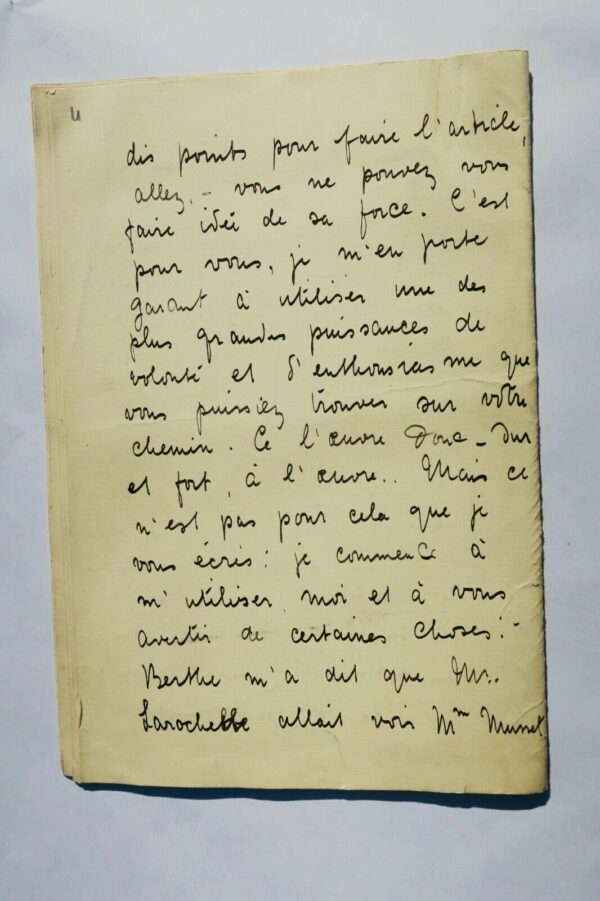 4
dis points pour faire l'article,
allez, - vous ne pouvez vous
faire idée de sa force. C'est
pour vous, je m'en porte
garant à utiliser une des
plus grandes puissances de
volonté et d'enthousiasme que
vous puissiez trouver sur votre
chemin. Ce l'œuvre donc - Dur
et fort, à l'œuvre.. Mais ce
n'est pas pour cela que je
vous écris: je commence à
m'utiliser, moi et à vous
avertir de certaines choses: -
Berthe m'a dit que Mr.
Larochelle allait voir Mme Musset